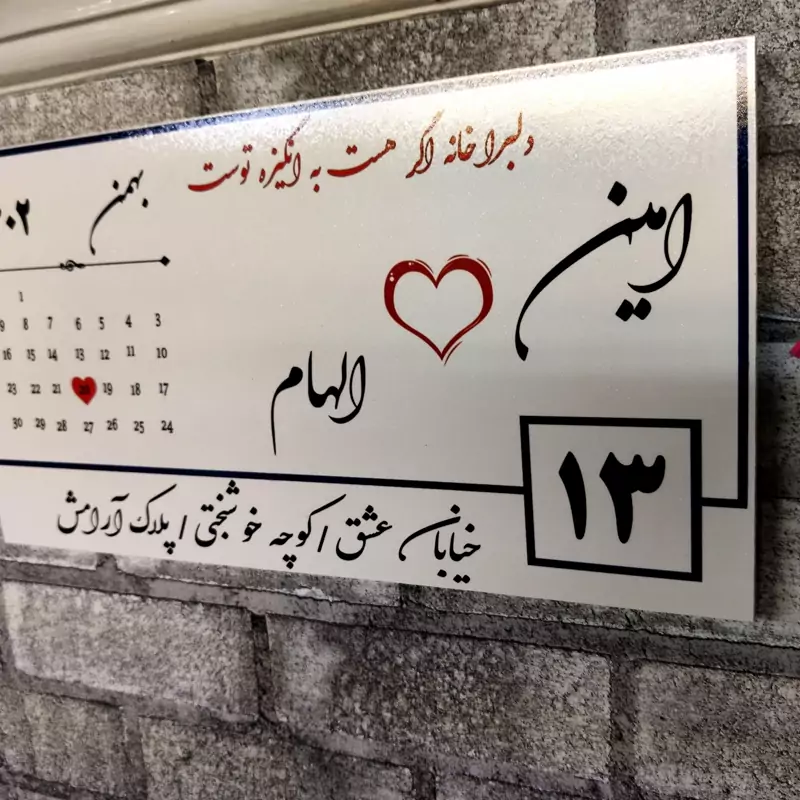 دلبرا خانه اگر هست به انگیزه توست
امین
الهام
بهمن
۰۲
1
3 4 5 6 7 8 9
10 11 12 13 14 15 16
17 18 19 21 22 23
24 25 26 27 28 29 30
۱۳
خیابان عشق / کوچه خوشبختی / پلاک آرامش